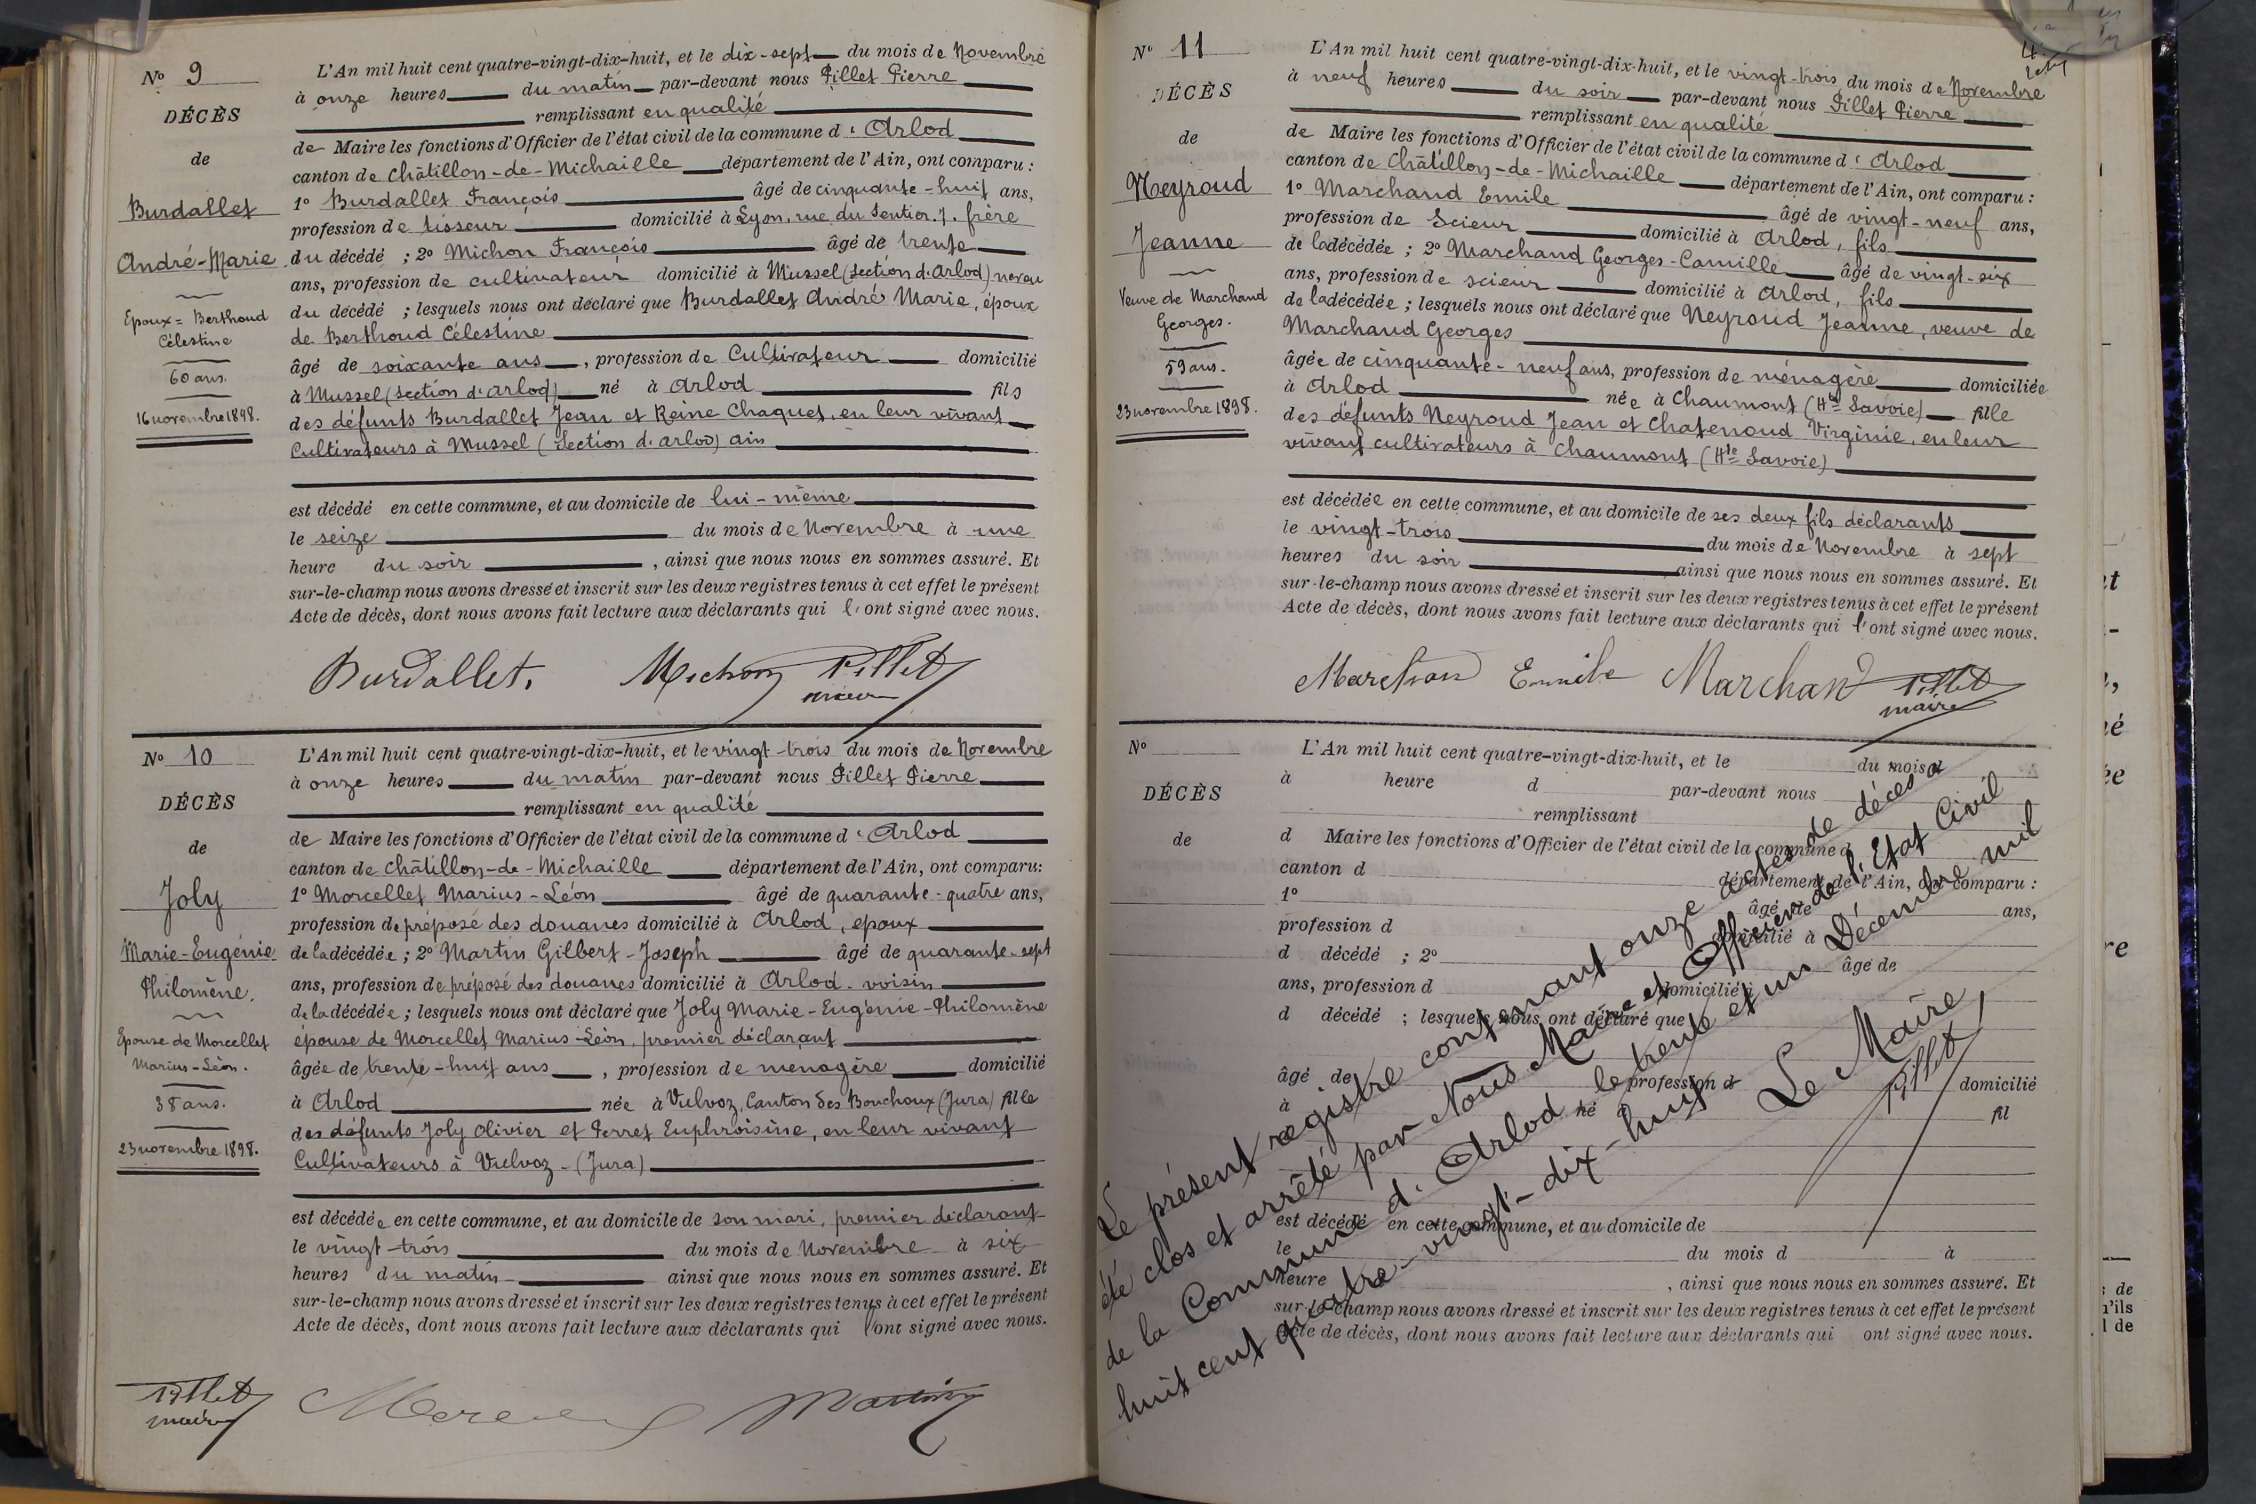 No 9
DÉCÈS
de
Burdallet
André-Marie
Epoux = Berthoud
Célestine
60 ans.
16 novembre 1898.
L'An mil huit cent quatre-vingt-dix-huit, et le dix-sept du mois de Novembre
à onze heures du matin par-devant nous Pillet Pierre
remplissant en qualité
de Maire les fonctions d'Officier de l'état civil de la commune d'Arlod
canton de Châtillon-de-Michaille département de l'Ain, ont comparu :
1o Burdallet François âgé de cinquante-huit ans,
profession de tisseur domicilié à Lyon, rue du Sentier. 7. frère
du décédé ; 2o Michon François âgé de trente
ans, profession de cultivateur domicilié à Mussel (section d'Arlod) neveu
du décédé ; lesquels nous ont déclaré que Burdallet André Marie, époux
de Berthoud Célestine
âgé de soixante ans, profession de Cultivateur domicilié
à Mussel (section d'Arlod) né à Arlod fils
des défunts Burdallet Jean et Reine Chaquet, en leur vivant
Cultivateurs à Mussel (section d'arlod) ain
est décédé en cette commune, et au domicile de lui-même
le seize du mois de Novembre à une
heure du soir, ainsi que nous nous en sommes assuré. Et
sur-le-champ nous avons dressé et inscrit sur les deux registres tenus à cet effet le présent
Acte de décès, dont nous avons fait lecture aux déclarants qui l'ont signé avec nous.
Burdallet. Michon Pillet
maire
No 10
DÉCÈS
de
Joly
Marie-Eugénie
Philomène.
Epouse de Morcellet
Marius-Léon.
38 ans.
23 novembre 1898.
L'An mil huit cent quatre-vingt-dix-huit, et le vingt-trois du mois de Novembre
à onze heures du matin par-devant nous Pillet Pierre
remplissant en qualité
de Maire les fonctions d'Officier de l'état civil de la commune d'Arlod
canton de Châtillon-de-Michaille département de l'Ain, ont comparu:
1o Morcellet Marius-Léon âgé de quarante-quatre ans,
profession de préposé des douanes domicilié à Arlod, epoux
de la décédée ; 2o Martin Gilbert-Joseph âgé de quarante-sept
ans, profession de préposé des douanes domicilié à Arlod. voisin
de la décédée ; lesquels nous ont déclaré que Joly Marie-Eugénie-Philomène
épouse de Morcellet Marius-Léon, premier déclarant
âgée de trente-huit ans, profession de menagère domicilié
à Arlod née à Vulvoz, Canton des Bouchoux (Jura) fille
des défunts Joly Olivier et Perret Euphroisine, en leur vivant
Cultivateurs à Vulvoz-(Jura)
est décédée en cette commune, et au domicile de son mari, premier déclarant
le vingt-trois du mois de Novembre à six
heures du matin ainsi que nous nous en sommes assuré. Et
sur-le-champ nous avons dressé et inscrit sur les deux registres tenus à cet effet le présent
Acte de décès, dont nous avons fait lecture aux déclarants qui l'ont signé avec nous.
Pillet Martin
maire
No 11
DÉCÈS
de
Neyroud
Jeanne
Veuve de Marchand
Georges.
59 ans.
23 novembre 1898.
L'An mil huit cent quatre-vingt-dix-huit, et le vingt-trois du mois de Novembre
à neuf heures du soir par-devant nous Pillet Pierre
remplissant en qualité
de Maire les fonctions d'Officier de l'état civil de la commune d'Arlod
canton de Châtillon-de-Michaille département de l'Ain, ont comparu :
1o Marchand Emile âgé de vingt-neuf ans,
profession de Scieur domicilié à Arlod, fils
de la décédée ; 2o Marchand Georges-Camille âgé de vingt-six
ans, profession de scieur domicilié à Arlod, fils
de la décédée ; lesquels nous ont déclaré que Neyroud Jeanne, veuve de
Marchand Georges
âgée de cinquante-neuf ans, profession de ménagère domiciliée
à Arlod née à Chaumont (Hte Savoie) fille
des défunts Neyroud Jean et Chatenoud Virginie, en leur
vivant cultivateurs à Chaumont (Hte Savoie)
est décédée en cette commune, et au domicile de ses deux fils déclarants
le vingt-trois du mois de Novembre à sept
heures du soir ainsi que nous nous en sommes assuré. Et
sur-le-champ nous avons dressé et inscrit sur les deux registres tenus à cet effet le présent
Acte de décès, dont nous avons fait lecture aux déclarants qui l'ont signé avec nous.
Marchand Emile Marchand Pillet
maire
No
DÉCÈS
de
L'An mil huit cent quatre-vingt-dix-huit, et le du mois d
à heure d par-devant nous
remplissant
d Maire les fonctions d'Officier de l'état civil de la commune d
canton d département de l'Ain, ont comparu :
1o âgé de ans,
profession d domicilié à
d décédé ; 2o âgé de
ans, profession d domicilié à
d décédé ; lesquels nous ont déclaré que
âgé de profession d domicilié
à né à fil
est décédé en cette commune, et au domicile de
le du mois d à
heure , ainsi que nous nous en sommes assuré. Et
sur-le-champ nous avons dressé et inscrit sur les deux registres tenus à cet effet le présent
Acte de décès, dont nous avons fait lecture aux déclarants qui ont signé avec nous.
Le présent registre contenant onze actes de décès a
été clos et arrêté par Nous Maire et Officier de l'Etat Civil
de la Commune d'Arlod le trente et un Décembre mil
huit cent quatre-vingt-dix-huit
Le Maire
Pillet